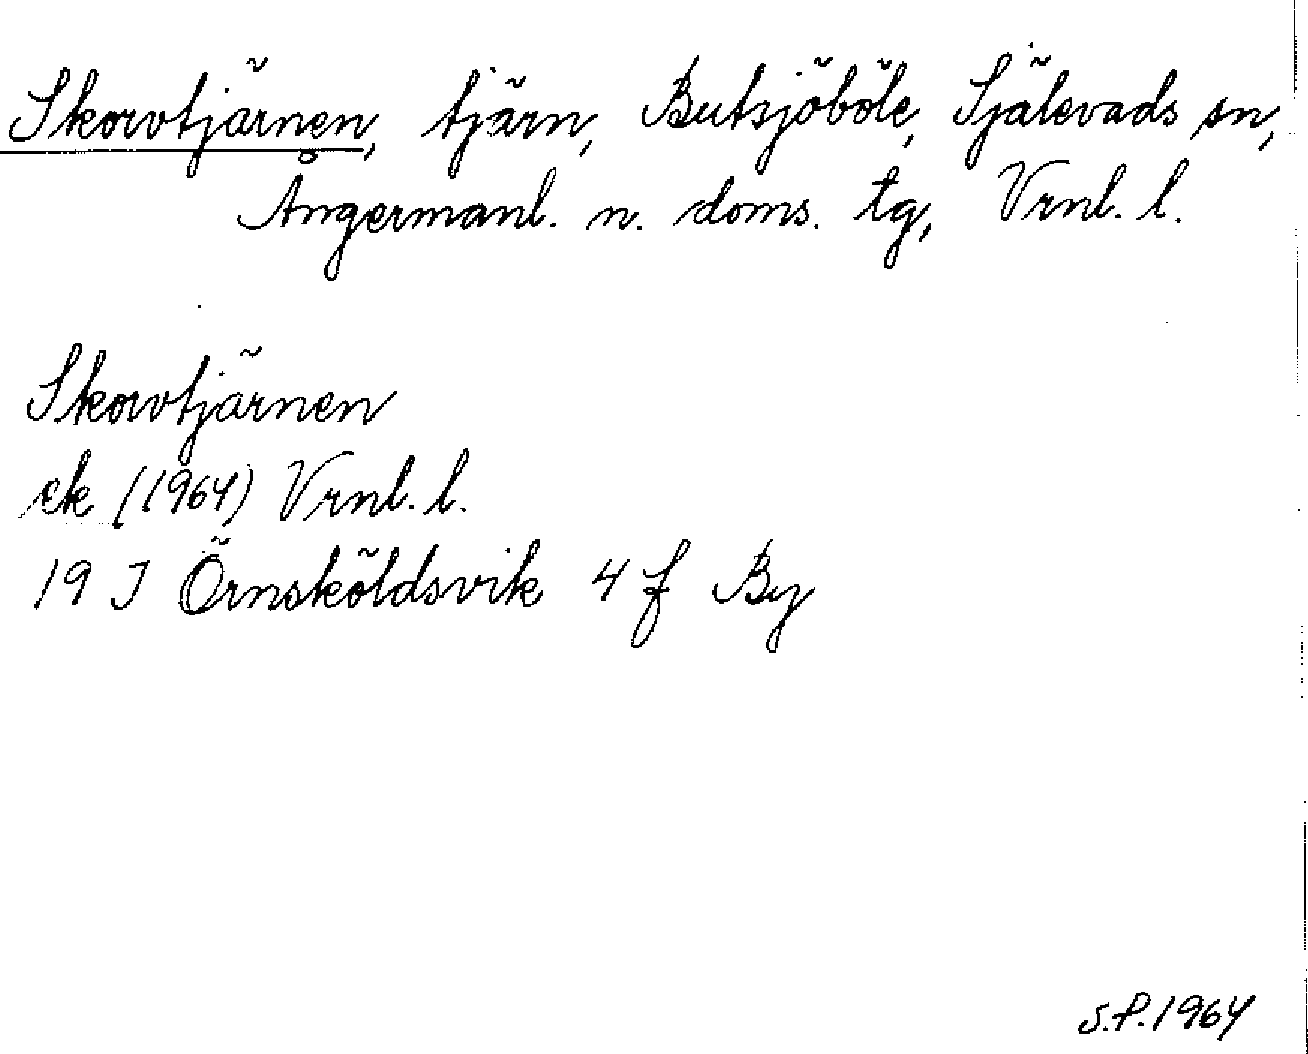 Skorvtjärnen, tjärn, Butsjöböle, Själevads sn,
Ångermanl. n. doms. tg, Vrnl. l.
Skorvtjärnen
ek (1964) Vrnl. l.
19 J Örnsköldsvik 4 f By
S.P. 1964